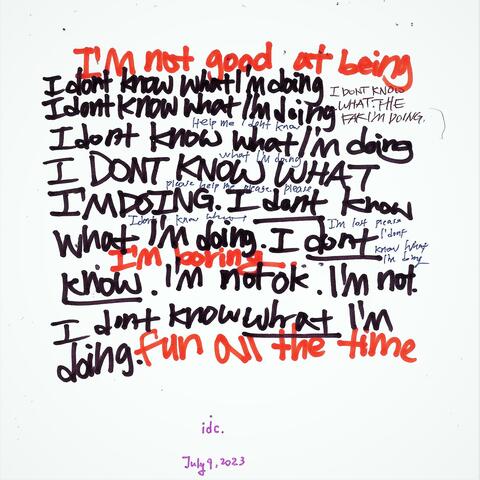 I'M not good at being
I dont know what I'm doing
I DONT KNOW
I dont know what I'm doing
WHAT THE
FAK I'M DOING.
Help me I dont know
I dont know what I'm doing
what I'm doing
I DONT KNOW WHAT
please help me please. please
I'M DOING. I dont know
I dont know what
Im lost please
I dont
what I'm doing. I dont
know what
I'm doing
I'm boring
know. I'm not ok. I'm not.
I dont know what I'm
doing. fun all the time
idc.
July 9, 2023